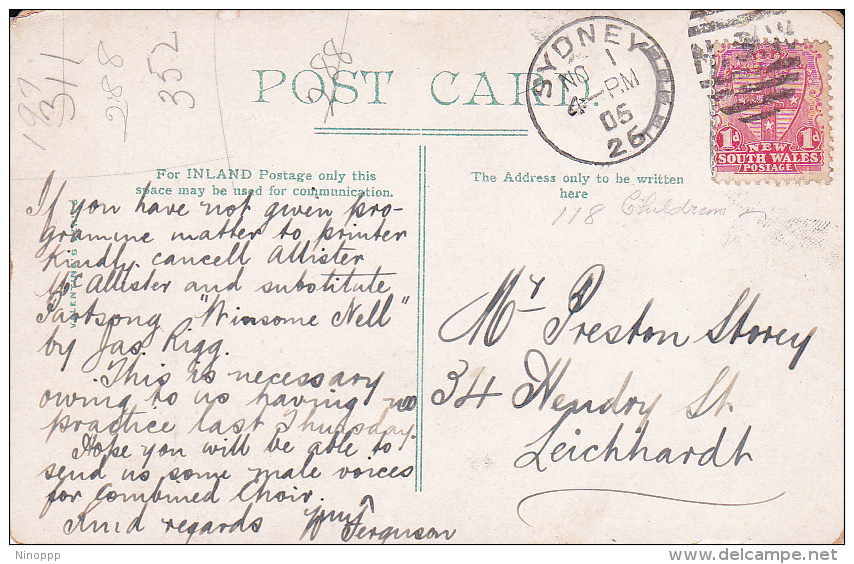 199
311
288
352
288
POST CARD
SYDNEY
NO 1
4- P.M
05
25
1d 1d
NEW
SOUTH WALES
POSTAGE
For INLAND Postage only this
space may be used for communication.
The Address only to be written
here
118 Childrens
If you have not given pro-
gramme matter to printer
kindly cancell Allister
McAllister and substitute
Partsong "Winsome Nell"
by Jas. Rigg.
This is necessary
owing to us having no
practice last Thursday.
Hope you will be able to
send us some male voices
for Combined Choir.
Kind regards Wm Ferguson
Mr Preston Storey
34 Hendry St
Leichhardt
Ninoppp
delcampe.net